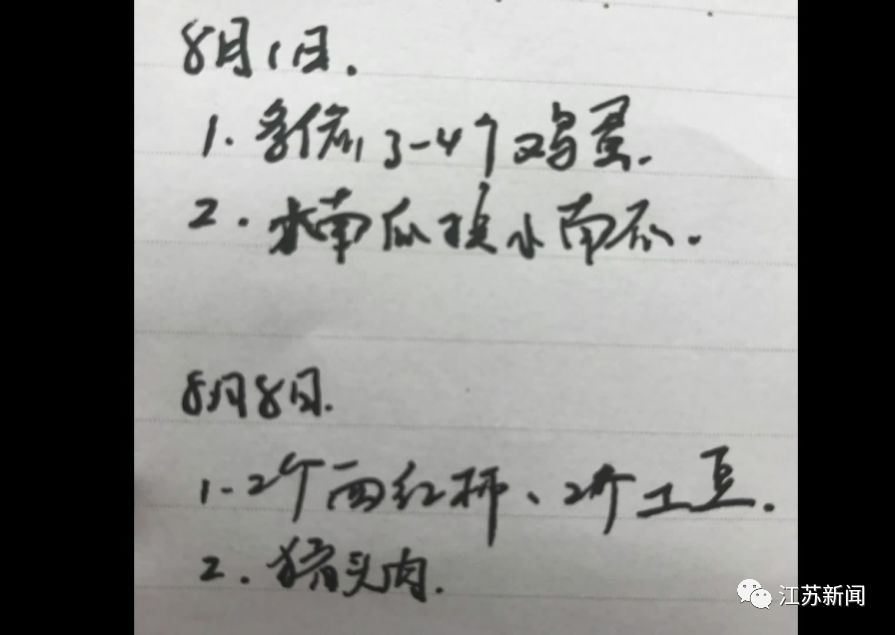 8月1日.
1. 多偷3-4个鸡蛋.
2. 南瓜换小南瓜.
8月8日.
1. 2个西红柿、2个土豆.
2. 猪头肉.
江苏新闻